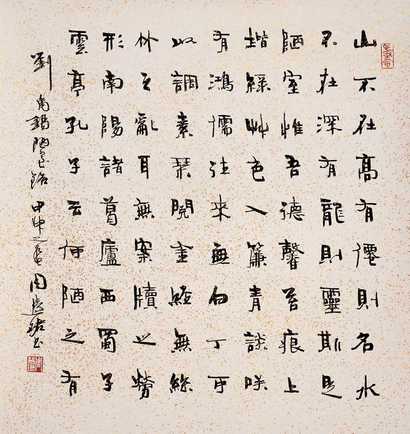 山不在高有僊則名水
不在深有龍則靈斯是
陋室惟吾德馨苔痕上
堦綠艸色入簾青談咲
有鴻儒往來無白丁可
以調素琴閱金經無絲
竹之亂耳無案牘之勞
形南陽諸葛廬西蜀子
雲亭孔子云何陋之有
劉禹錫陋室銘甲申之周